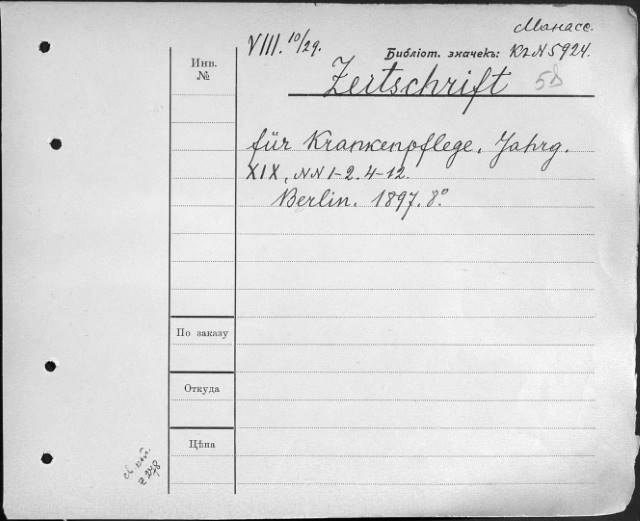 Манасс.
VIII. 10/29.
Библіот. значекъ: Кл N 5924.
Zeitschrift 58
für Krankenpflege. Jahrg.
XIX, NN 1-2. 4-12.
Berlin. 1897. 8°
Инв.
№
По заказу
Откуда
Цѣна